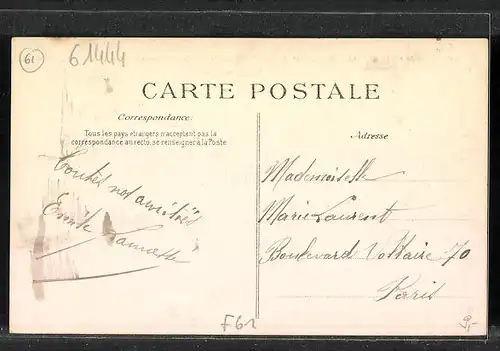 61
61444
CARTE POSTALE
Correspondance:
Tous les pays étrangers n'acceptent pas la
correspondance au recto, se renseigner à la Poste
Adresse
Toutes nos amitiés
Emile
Mademoiselle
Marie Laurent
Boulevard Voltaire 70
Perris
F61
9,-